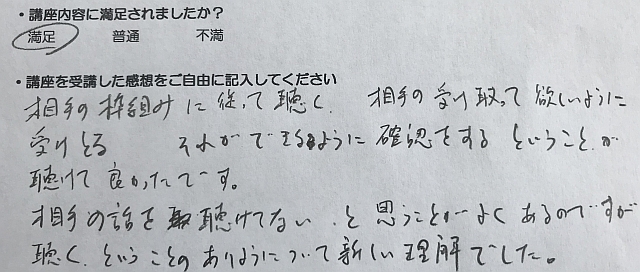 ・講座内容に満足されましたか?
満足 普通 不満
・講座を受講した感想をご自由に記入してください
相手の枠組みに従って聴く、 相手の受け取って欲しいように
受けとる それができるように確認をする ということが
聴けて良かったです。
相手の話を聴けてない、と思うことがよくあるのですが
聴く、ということのありようについて新しい理解でした。